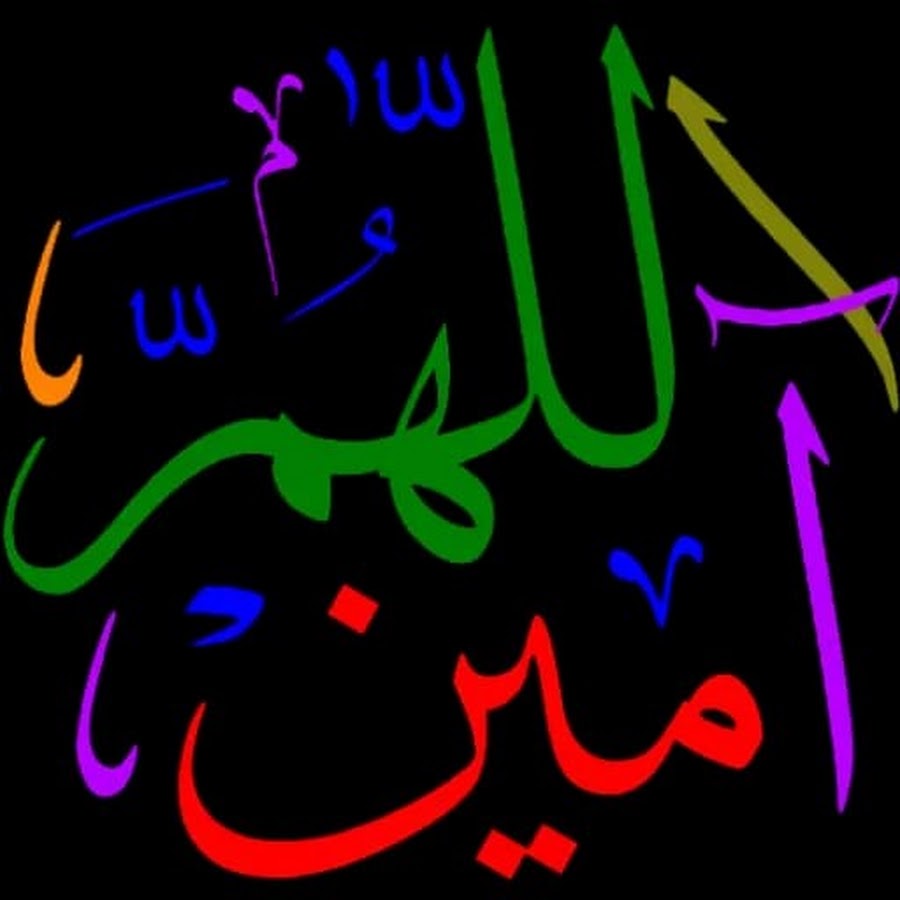 اللهم
آمين